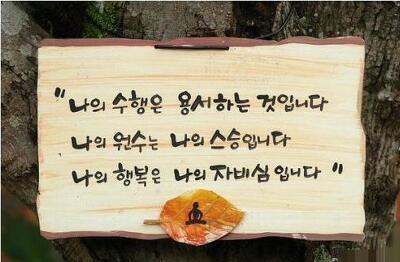 "나의 수행은 용서하는 것입니다
나의 원수는 나의 스승입니다
나의 행복은 나의 자비심입니다"